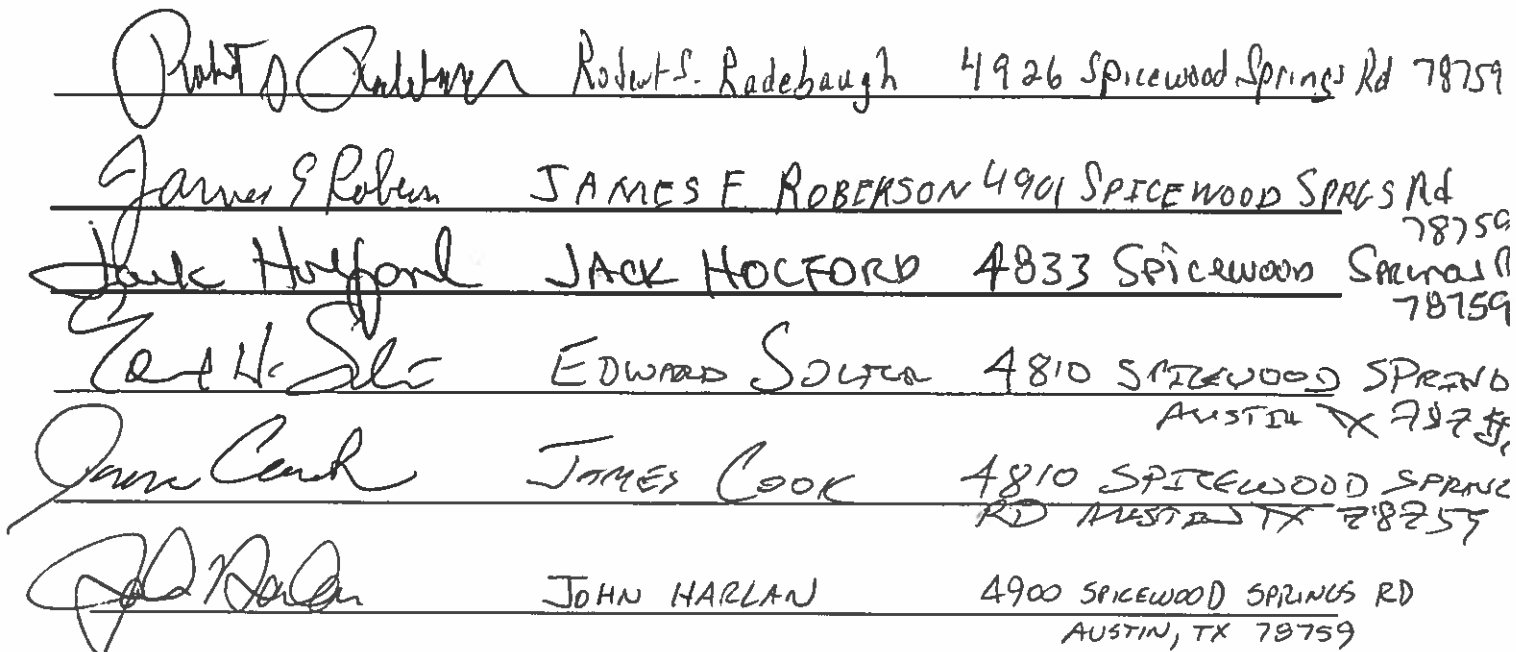 Robert S. Radebaugh 4926 Spicewood Springs Rd 78759
James E Roberson JAMES E ROBERSON 4901 SPICEWOOD SPRGS Rd
78759
Jack Holford JACK HOLFORD 4833 SPICEWOOD SPRINGS
78759
EDWARD SOLTER 4810 SPICEWOOD SPRING
AUSTIN TX
James Cook JAMES COOK 4810 SPICEWOOD SPRING
RD AUSTIN TX 78759
John Harlan JOHN HARLAN 4900 SPICEWOOD SPRINGS RD
AUSTIN, TX 78759